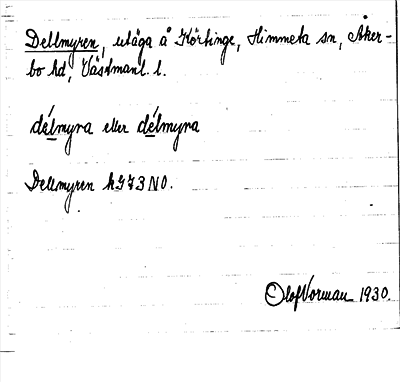 Dellmyren, utäga å Körtinge, Himmeta sn, Åker-
bo hd, Västmanl. l.
délmyra eller délmyra
Dellmyren h973NO.
Olof Norman 1930.